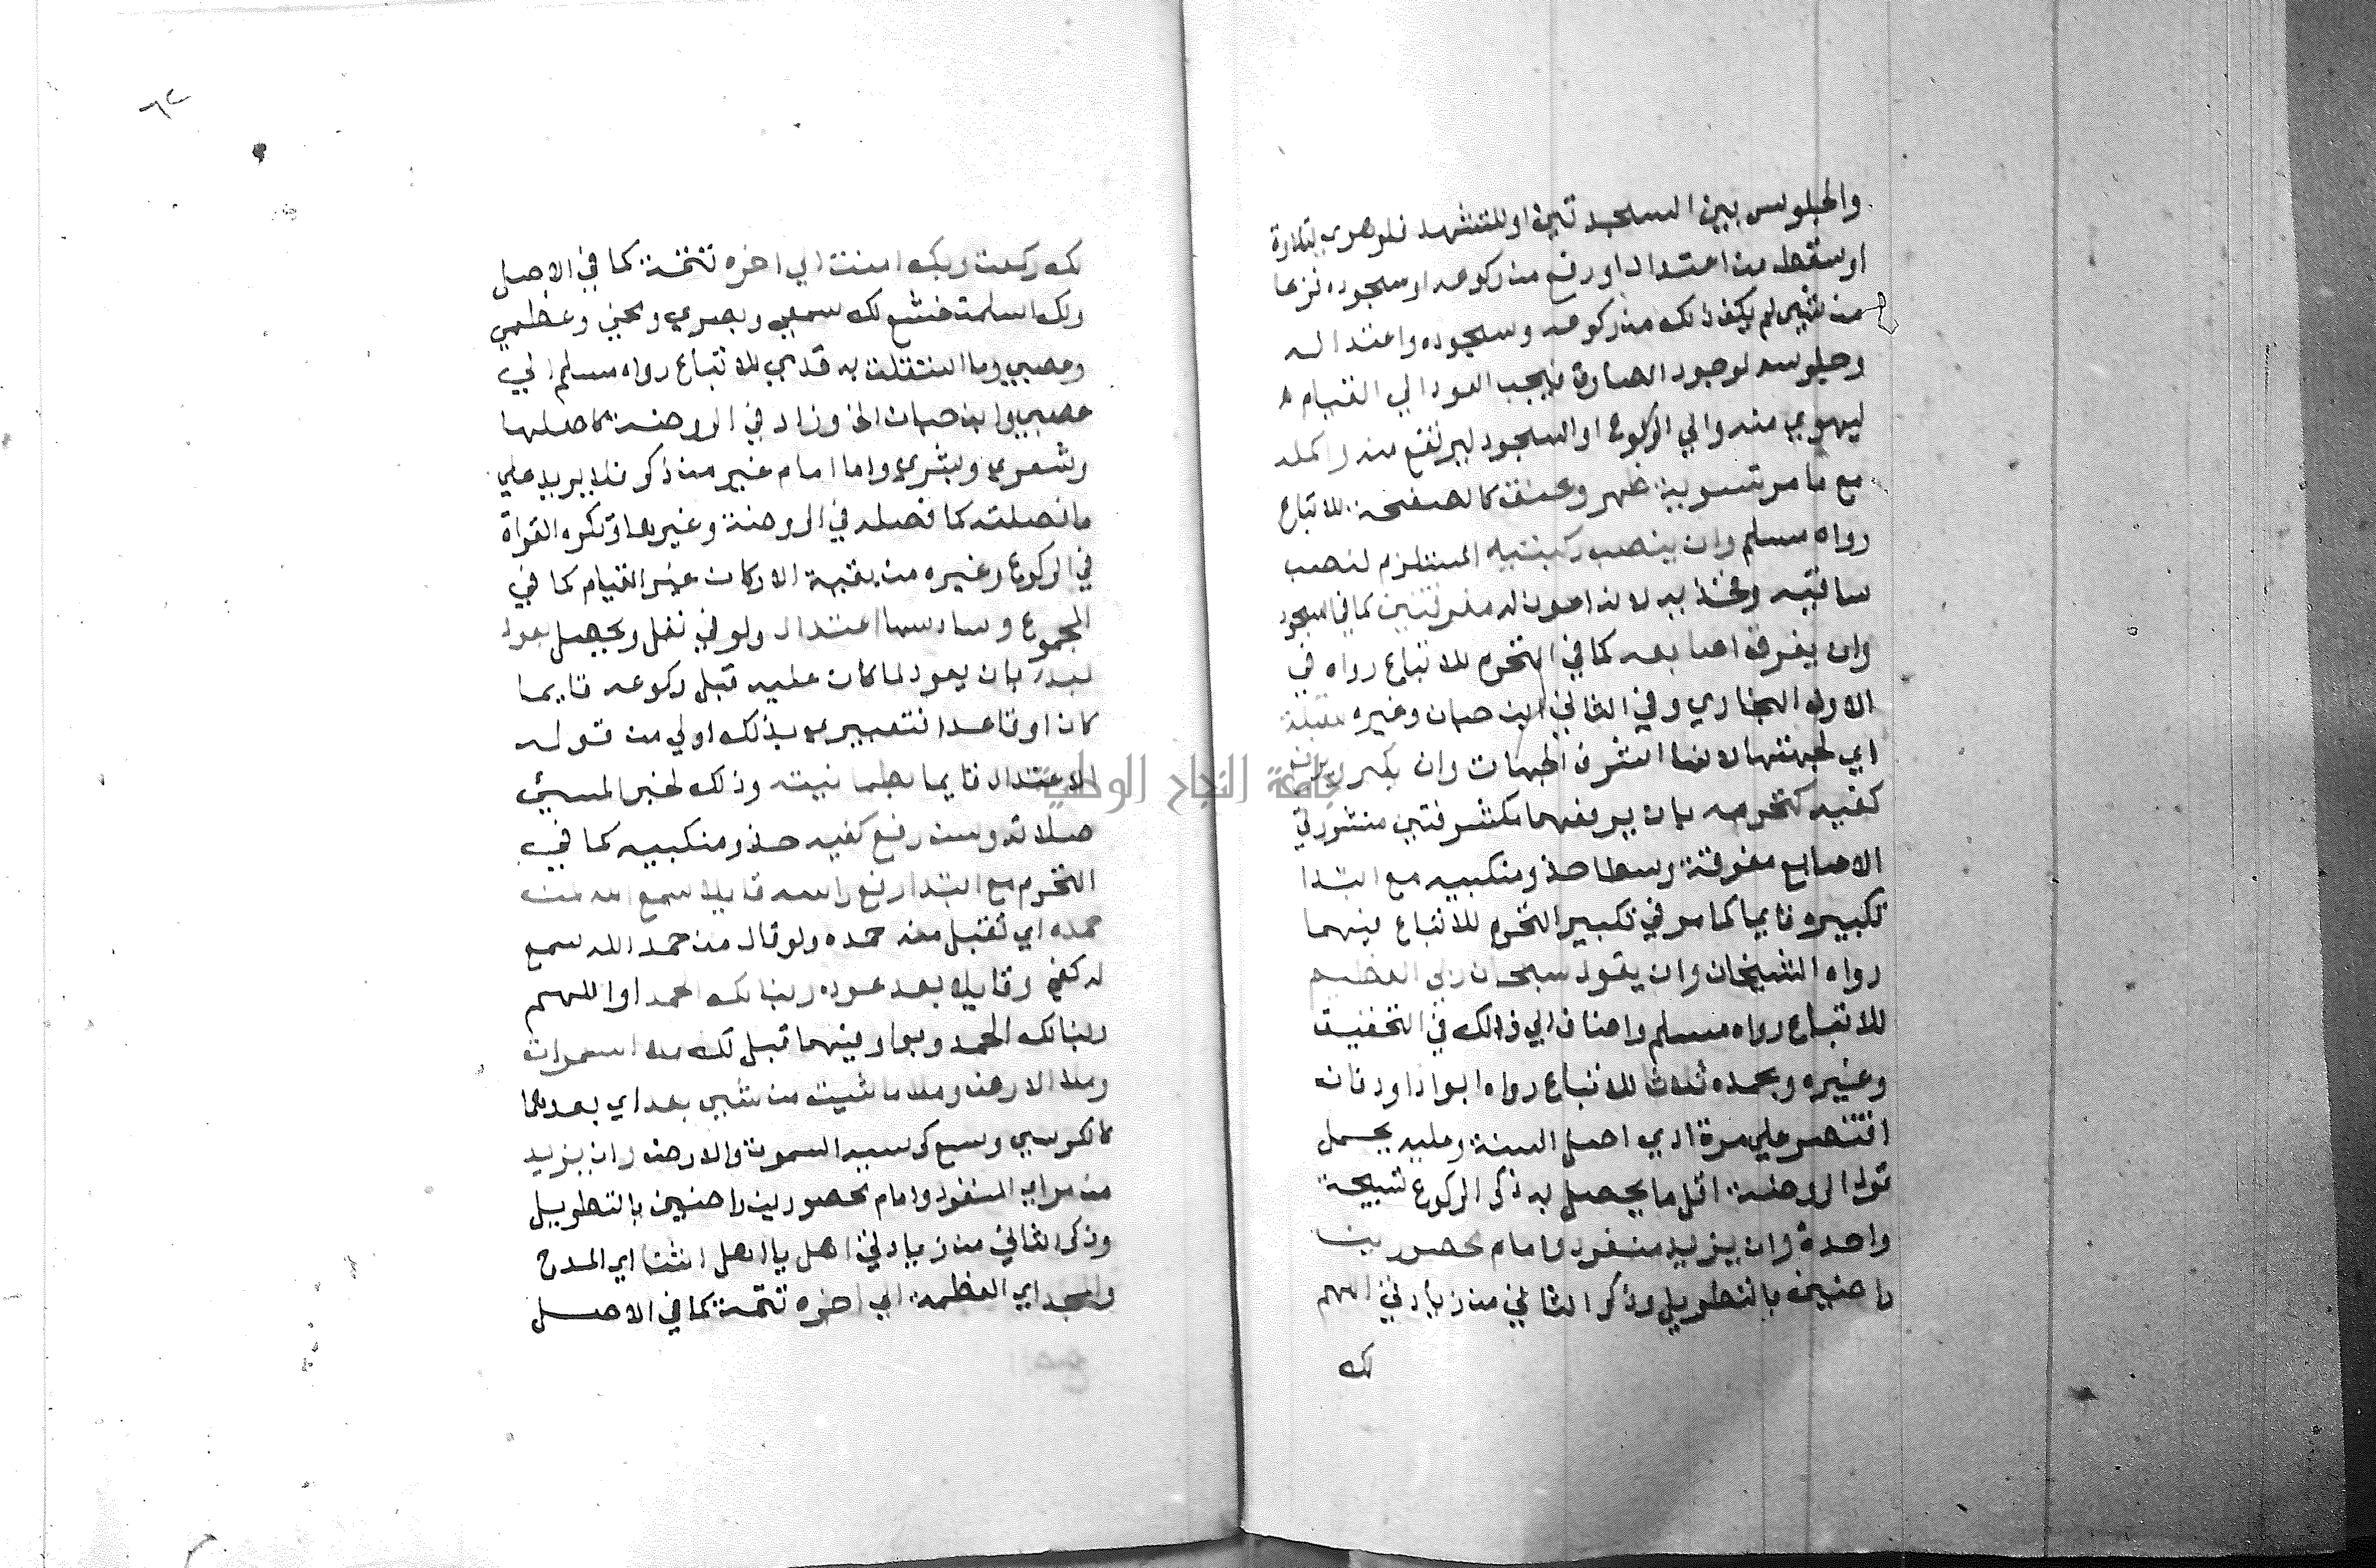 والجلوس بين السجدتين او للتشهد فلو هوي لتلاوة
او سقط من اعتدال او رفع من ركوعه او سجوده فزعا
من شيء لم يكف ذلك من ركوعه وسجوده واعتداله
وجلوسه لوجود الصارف فيجب العود الي القيام
ليهوي منه والي الركوع او السجود ليرتفع منه واكمله
مع ما مر تسوية ظهر وعنق كالصفيحة للاتباع
رواه مسلم وان ينصب ركبتيه المستلزم لنصب
ساقيه وفخذيه لانه اعون له مفرقتين كما في السجود
وان يفرق اصابعه كما في التحرم للاتباع رواه في
الاول البخاري وفي الثاني ابن حبان وغيره للقبلة
اي لجهتها لانها اشرف الجهات وان يكبر ويرفع
كفيه كتحرمه بان يرفعهما مكشوفتين منشورتي
الاصابع مفرقة وسطا حذو منكبيه مع ابتدا
تكبيره قايما كما مر في تكبير التحرم للاتباع فيهما
رواه الشيخان وان يقول سبحان ربي العظيم
للاتباع رواه مسلم واضاف الي ذلك في التحقيق
وغيره وبحمده ثلاثا للاتباع رواه ابو داود فان
اقتصر علي مرة ادي اصل السنة وعليه يحمل
قول الروضة اقل ما يحصل به ذكر الركوع تسبيحة
واحدة وان يزيد منفرد وامام محصورين
راضين بالتطويل وذكر الثاني من زيادتي اللهم
لك
٦٢
لك ركعت وبك امنت الي اخره تتمته كما في الاصل
ولك اسلمت خشع لك سمعي وبصري ومخي وعظمي
وعصبي وما استقلت به قدمي للاتباع رواه مسلم الي
عصبي وابن حبان الخ وزاد في الروضة كاصلها
وشعري وبشري واما امام غير من ذكر فلا يزيد علي
ما فصلته كما فصله في الروضة وغيرها وتكره القراة
في الركوع وغيره من بقية الاركان غير القيام كما في
المجموع وسادسها اعتدال ولو في نفل ويحصل بعود
لبدء بان يعود لما كان عليه قبل ركوعه قايما
كان او قاعدا فتعبيري بذلك اولي من قوله
الاعتدال قايما بطمانينته وذلك لخبر المسيء
صلاته وسن رفع كفيه حذو منكبيه كما في
التحرم مع ابتدا رفع راسه قايلا سمع الله لمن
حمده اي تقبل منه حمده ولو قال من حمد الله سمع
له كفي وقايلا بعد عوده ربنا لك الحمد او اللهم
ربنا لك الحمد وبواو فيهما قبل لك ملء السموات
وملا الارض وملا ما شيت من شي بعد اي بعدهما
كالكرسي وسع كرسيه السموت والارض وان يزيد
من مر اي المنفرد وامام محصورين راضين بالتطويل
وذكر الثاني من زيادتي اهل يا اهل الثنا اي المدح
والمجد اي العظمة الي اخره تتمته كما في الاصل
جامعة النجاح الوطنية